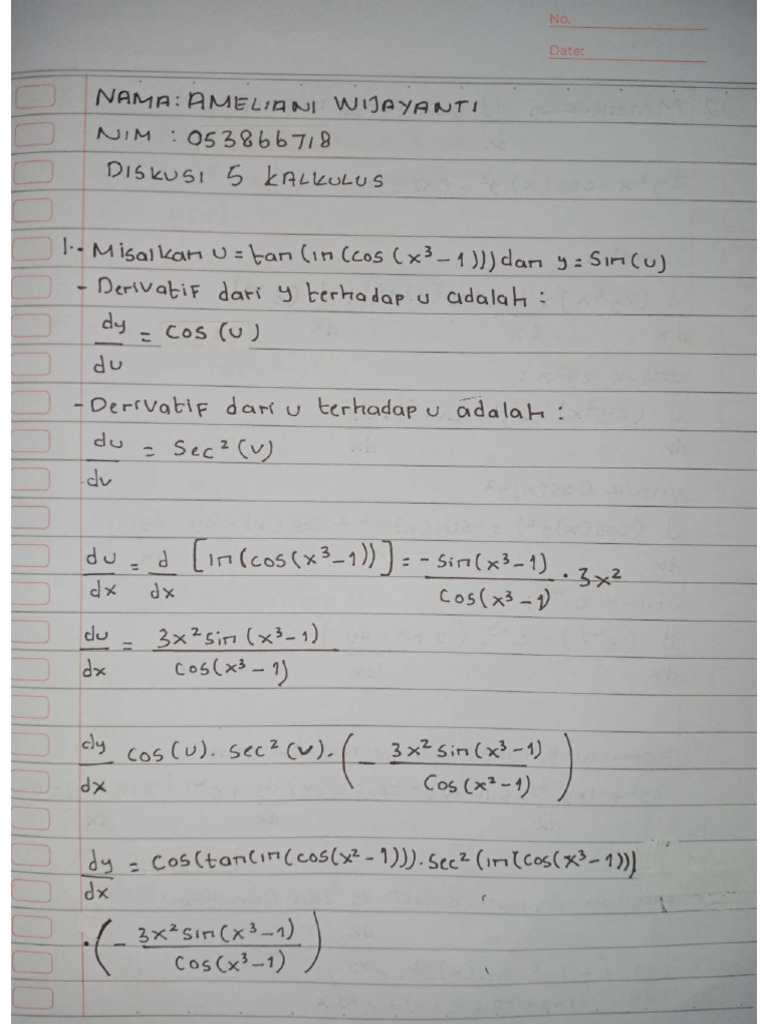 No.
Date:
NAMA: AMELIANI WIJAYANTI
NIM : 053866718
DISKUSI 5 KALKULUS
1.- Misalkan u = tan (in (cos (x³ - 1))) dan y = Sin (u)
- Derivatif dari y terhadap u adalah :
dy/du = cos (u)
- Derivatif dari u terhadap u adalah :
du/dv = Sec² (v)
du/dx = d/dx [in (cos (x³ - 1))] = - sin (x³ - 1)/cos (x³ - 1) · 3x²
du/dx = 3x² sin (x³ - 1)/cos (x³ - 1)
dy/dx cos (u). sec² (v). (- 3x² sin (x³ - 1)/Cos (x² - 1))
dy/dx = cos (tan (in (cos (x² - 1))). sec² (in (cos (x³ - 1)))
· (- 3x² sin (x³ - 1)/cos (x³ - 1))